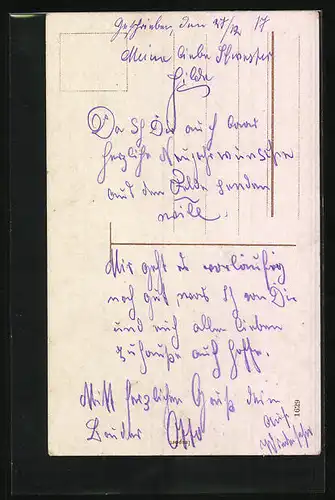 Geschrieben, den 27/12 17
Meine liebe Schwester
Hilde
Da ich Dir auch paar
herzliche Neujahrswünsche
aus dem Felde senden
will.
Mir geht es vorläufig
noch gut was ich von Dir
und euch allen lieben
zuhause auch hoffe.
Mitt herzlichen Gruß dein
Bruder Otto
Auf
Wiedersehn
1629